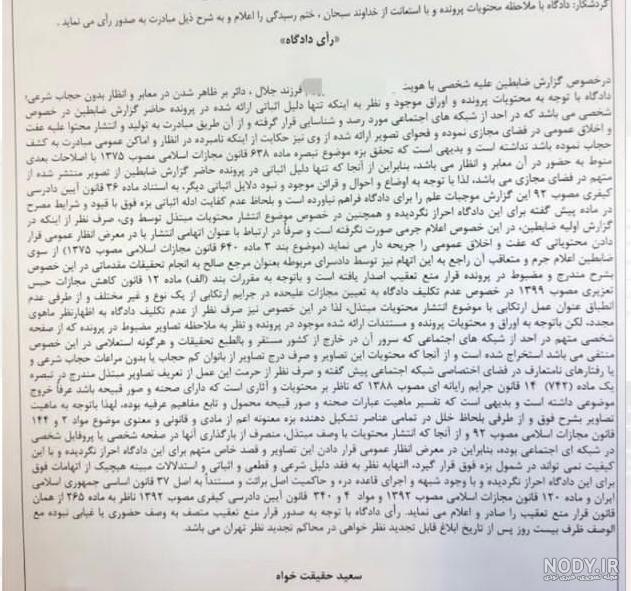 گردشکار: دادگاه با ملاحظه محتویات پرونده و با استعانت از خداوند سبحان ، ختم رسیدگی را اعلام و به شرح ذیل مبادرت به صدور رأی می نماید .
«رأی دادگاه»
درخصوص گزارش ضابطین علیه شخصی با هویت فرزند جلال ، دائر بر ظاهر شدن در معابر و انظار بدون حجاب شرعی؛
دادگاه با توجه به محتویات پرونده و اوراق موجود و نظر به اینکه تنها دلیل اثباتی ارائه شده در پرونده حاضر گزارش ضابطین در خصوص
شخصی می باشد که در احد از شبکه های اجتماعی مورد رصد و شناسایی قرار گرفته و از آن طریق مبادرت به تولید و انتشار محتوا علیه عفت
و اخلاق عمومی در فضای مجازی نموده و فحوای تصویر ارائه شده از وی نیز حکایت از اینکه نامبرده در انظار و اماکن عمومی مبادرت به کشف
حجاب نموده باشد نداشته است و بدیهی است که تحقق بزه موضوع تبصره ماده ۶۳۸ قانون مجازات اسلامی مصوب ۱۳۷۵ با اصلاحات بعدی
منوط به حضور در آن معابر و انظار می باشد، بنابراین از آنجا که تنها دلیل اثباتی در پرونده حاضر گزارش ضابطین از تصویر منتشر شده از
متهم در فضای مجازی می باشد، لذا با توجه به اوضاع و احوال و قرائن موجود و نبود دلایل اثباتی دیگر، به استناد ماده ۳۶ قانون آیین دادرسی
کیفری مصوب ۹۲ این گزارش موجبات علم را برای دادگاه فراهم نیاورده است و بلحاظ عدم کفایت ادله اثباتی بزه فوق با قیود و شرایط مصرح
در ماده پیش گفته برای این دادگاه احراز نگردیده و همچنین در خصوص موضوع انتشار محتویات مبتذل توسط وی، صرف نظر از اینکه در
گزارش اولیه ضابطین، در این خصوص اعلام جرمی صورت نگرفته است و صرفاً در ارتباط با عنوان اتهامی انتشار یا در معرض انظار عمومی قرار
دادن محتویاتی که عفت و اخلاق عمومی را جریحه دار می نماید (موضوع بند ۳ ماده ۶۴۰ قانون مجازات اسلامی مصوب ۱۳۷۵) از سوی
ضابطین اعلام جرم و متعاقب آن راجع به این اتهام نیز توسط دادسرای مربوطه بعنوان مرجع صالح به انجام تحقیقات مقدماتی در این خصوص
بشرح مندرج و مضبوط در پرونده قرار منع تعقیب اصدار یافته است و باتوجه به مقررات بند (الف) ماده ۱۲ قانون کاهش مجازات حبس
تعزیری مصوب ۱۳۹۹ در خصوص عدم تکلیف دادگاه به تعیین مجازات علیحده در جرایم ارتکابی از یک نوع و غیر مختلف و از طرفی عدم
انطباق عنوان عمل ارتکابی با موضوع انتشار محتویات مبتذل، لذا در این خصوص نیز صرف نظر از عدم تکلیف دادگاه به اظهارنظر ماهوی
مجدد، لکن باتوجه به اوراق و محتویات پرونده و مستندات ارائه شده موجود در پرونده و نظر به ملاحظه تصاویر مضبوط در پرونده که از صفحه
شخصی متهم در احد از شبکه های اجتماعی که سرور آن در خارج از کشور مستقر و بالطبع تحقیقات و هرگونه استعلامی در این خصوص
منتفی می باشد استخراج شده است و از آنجا که محتویات این تصاویر و صرف درج تصاویر از بانوان کم حجاب یا بدون مراعات حجاب شرعی و
یا رفتارهای نامتعارف در فضای اختصاصی شبکه اجتماعی پیش گفته و صرف نظر از حرمت این عمل از تعریف تصاویر مبتذل مندرج در تبصره
یک ماده (۷۴۲) ۱۴ قانون جرایم رایانه ای مصوب ۱۳۸۸ که ناظر بر محتویات و آثاری است که دارای صحنه و صور قبیحه باشد عرفاً خروج
موضوعی داشته است و بدیهی است که تفسیر ماهیت عبارات صحنه و صور قبیحه محمول و تابع مفاهیم عرفیه بوده، لهذا باتوجه به ماهیت
تصاویر بشرح فوق و از طرفی بلحاظ خلل در تمامی عناصر تشکیل دهنده بزه معنونه اعم از مادی و قانونی و معنوی موضوع مواد ۲ و ۱۴۴
قانون مجازات اسلامی مصوب ۹۲ و از آنجا که انتشار محتویات با وصف مبتذل، منصرف از بارگذاری آنها در صفحه شخصی یا پروفایل شخصی
در شبکه ای اجتماعی بوده، بنابراین در معرض انظار عمومی قرار دادن این تصاویر و قصد خاص متهم برای این دادگاه احراز نگردیده و با این
کیفیت نمی تواند در شمول بزه فوق قرار گیرد، النهایه نظر به فقد دلیل شرعی و قطعی و اثباتی و استدلالات مبینه هیچیک از اتهامات فوق
برای این دادگاه احراز نگردیده و با وجود شبهه و اجرای قاعده درء و حاکمیت اصل برائت و مستنداً به اصل ۳۷ قانون اساسی جمهوری اسلامی
ایران و ماده ۱۲۰ قانون مجازات اسلامی مصوب ۱۳۹۲ و مواد ۴ و ۳۴۰ قانون آیین دادرسی کیفری مصوب ۱۳۹۲ ناظر به ماده ۲۶۵ از همان
قانون قرار منع تعقیب را صادر و اعلام می نماید. رأی دادگاه با توجه به صدور قرار منع تعقیب متصف به وصف حضوری یا غیابی نبوده مع
الوصف ظرف بیست روز پس از تاریخ ابلاغ قابل تجدید نظر خواهی در محاکم تجدید نظر تهران می باشد.
سعید حقیقت خواه
NODY.IR